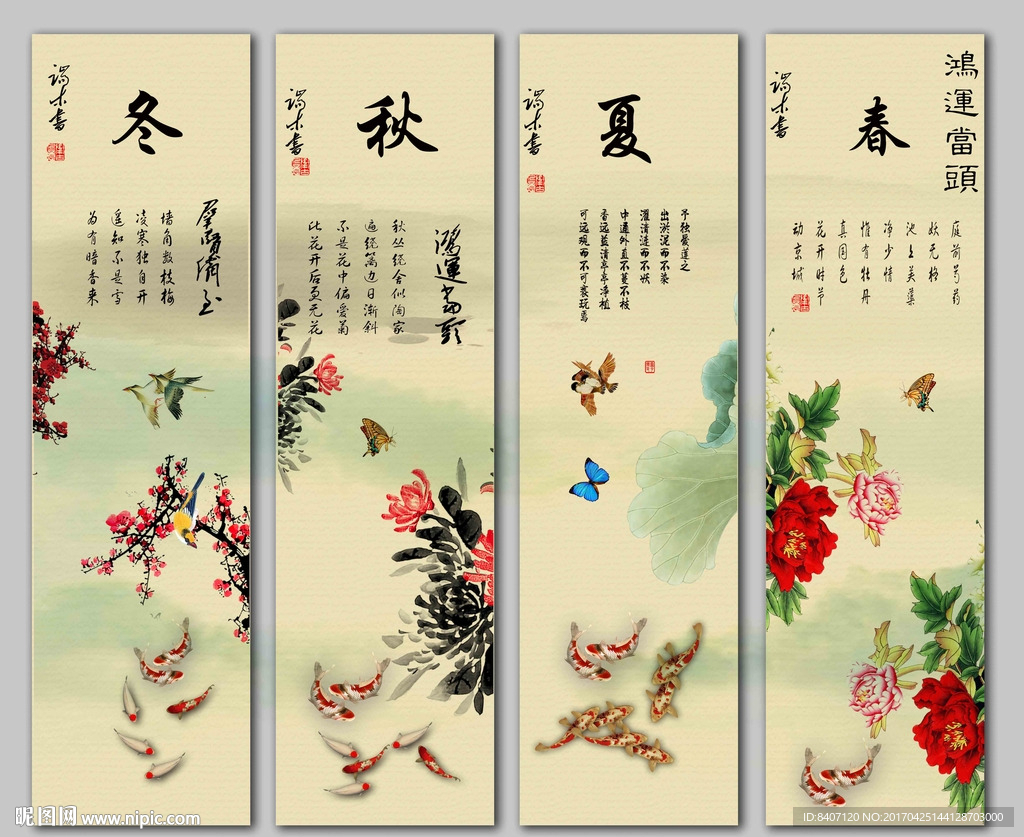 鴻運當頭
春
庭前芍药
妖无格
池上芙蕖
净少情
惟有牡丹
真国色
花开时节
动京城
端木書
夏
予独爱莲之
出淤泥而不染
濯清涟而不妖
中通外直不蔓不枝
香远益清亭亭净植
可远观而不可亵玩焉
端木書
秋
鴻運當頭
秋丛绕舍似陶家
遍绕篱边日渐斜
不是花中偏爱菊
此花开后更无花
端木書
冬
墙角数枝梅
凌寒独自开
遥知不是雪
为有暗香来
端木書
昵图网 www.nipic.com
ID:8407120 NO:20170425144128703000